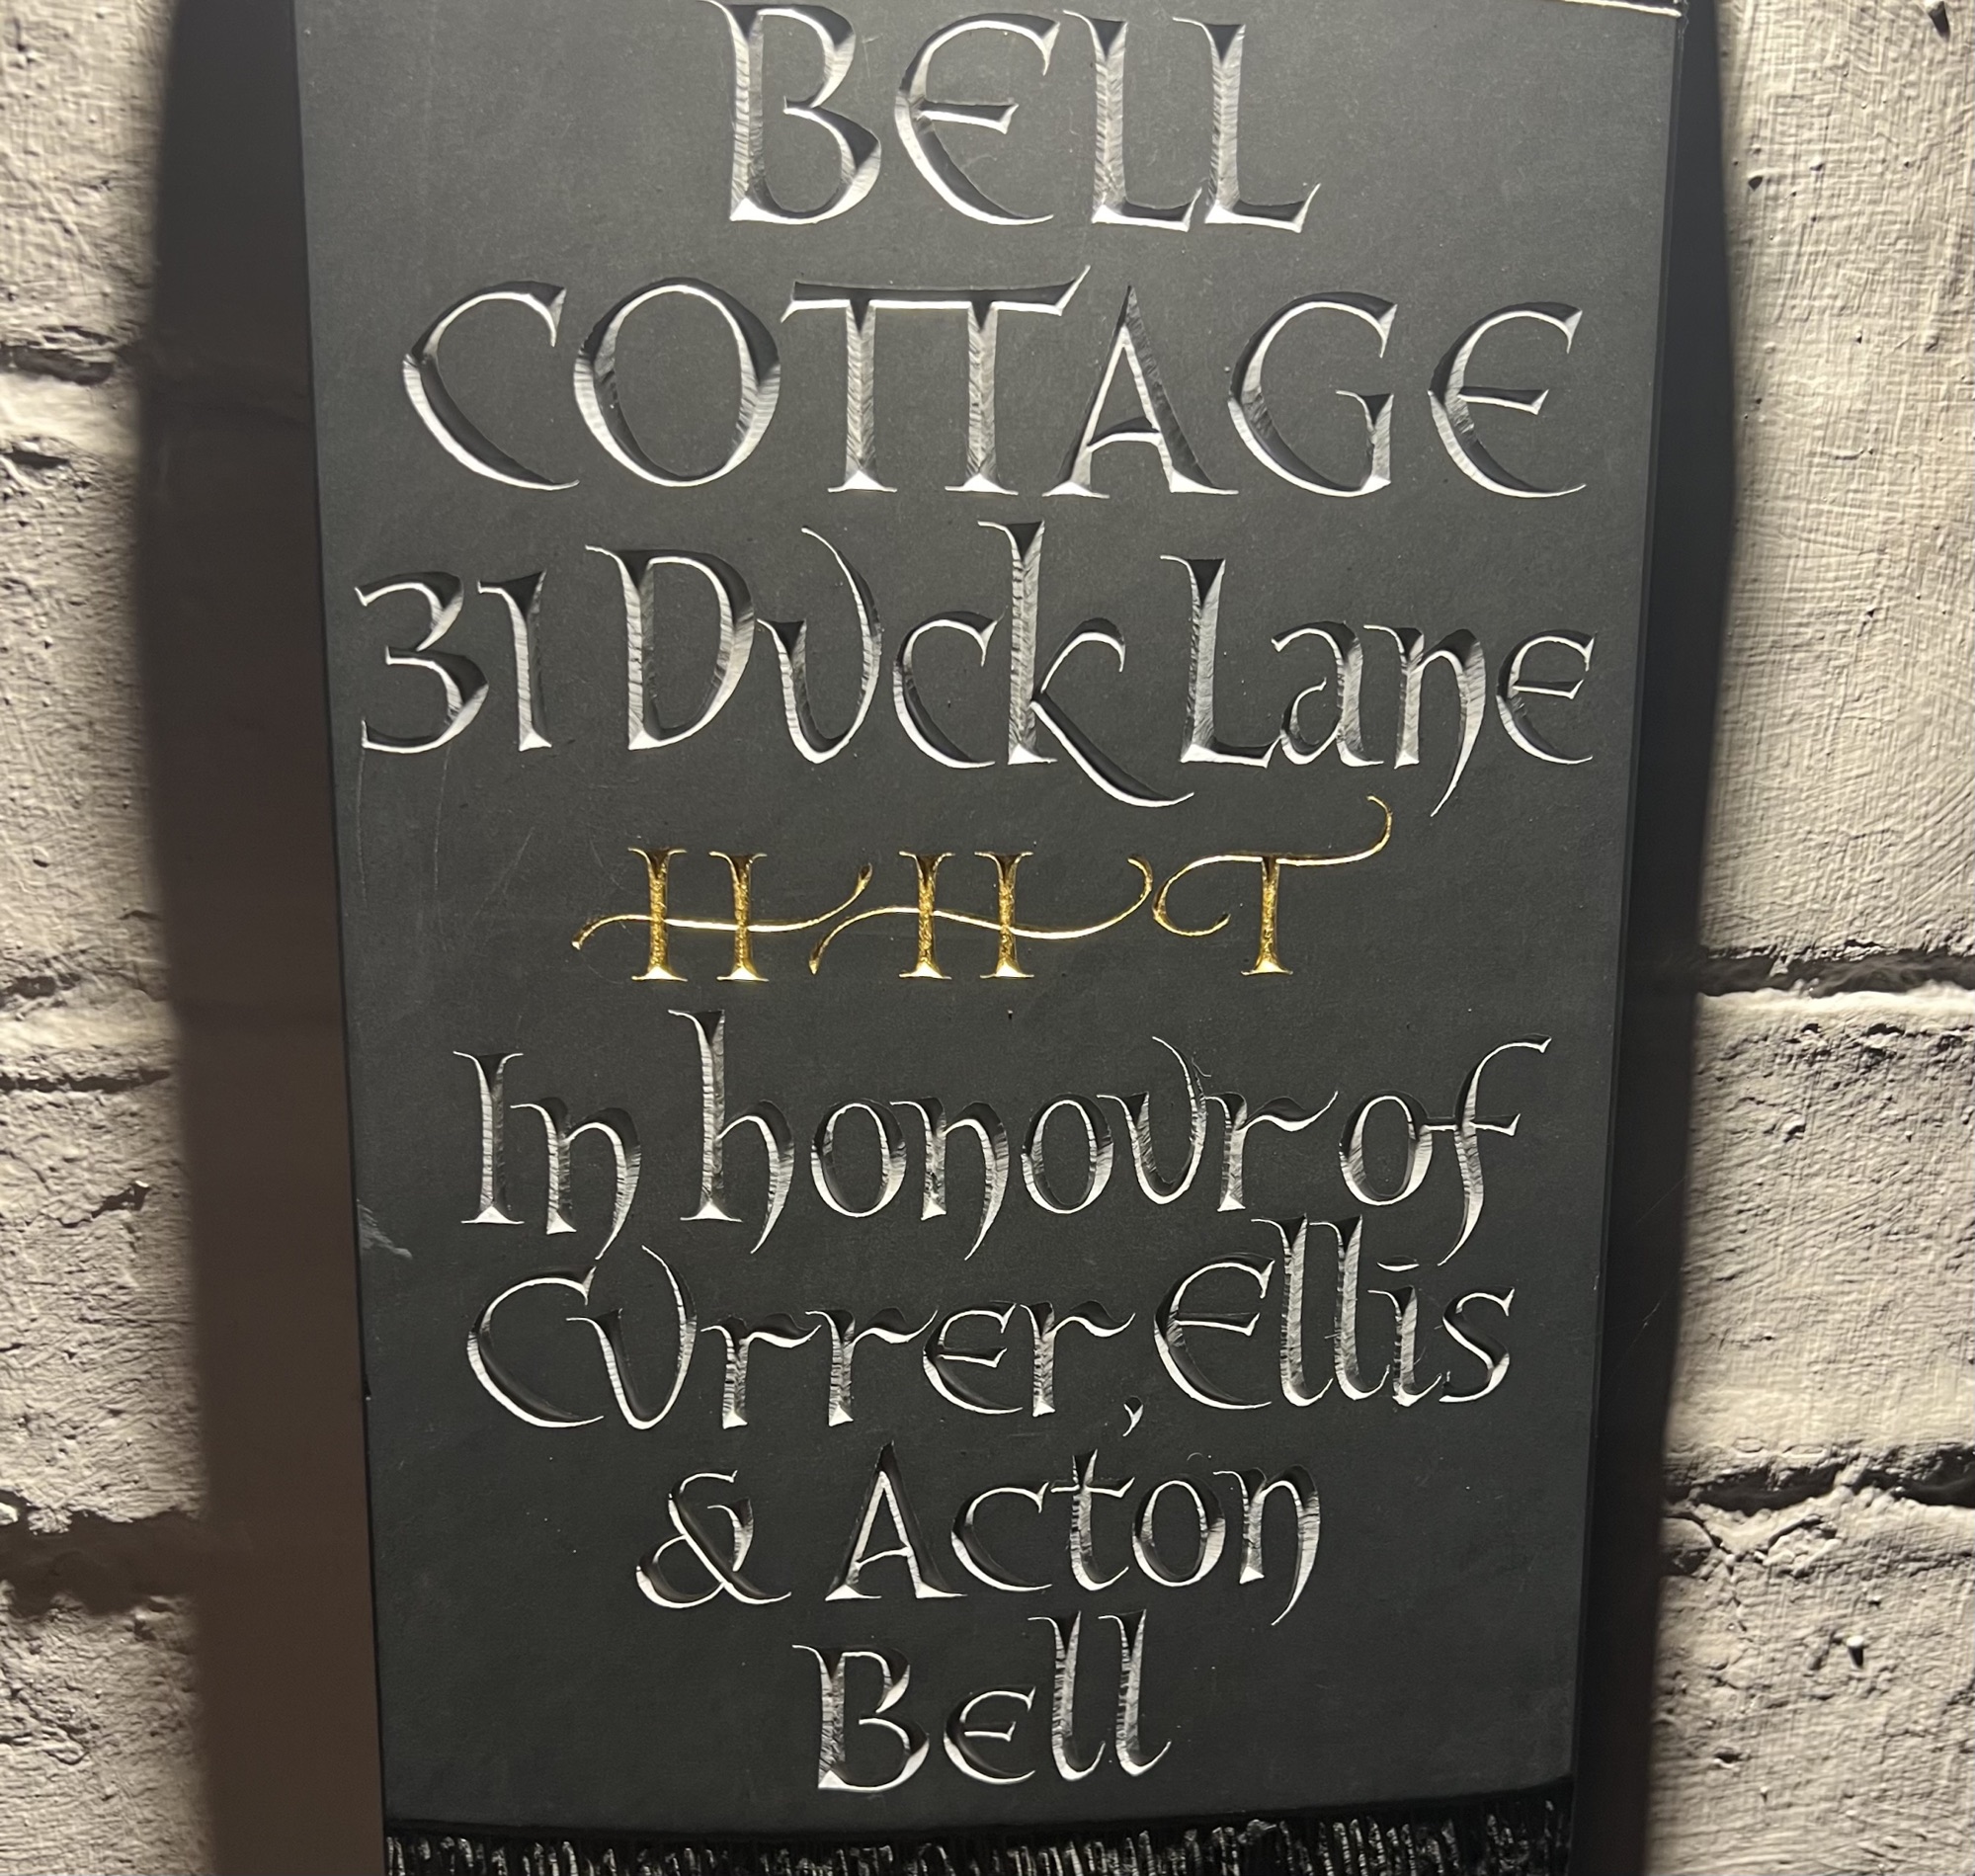 BELL
COTTAGE
31 Duck Lane
H H T
In honour of
Currer, Ellis
& Acton
Bell